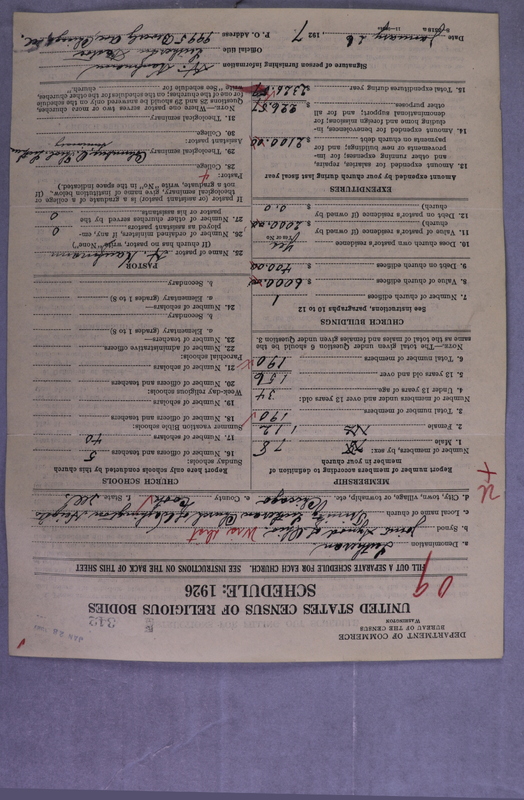 DEPARTMENT OF COMMERCE
BUREAU OF THE CENSUS
WASHINGTON
342
JAN 28
UNITED STATES CENSUS OF RELIGIOUS BODIES
SCHEDULE: 1926
09
FILL OUT A SEPARATE SCHEDULE FOR EACH CHURCH. SEE INSTRUCTIONS ON THE BACK OF THIS SHEET
a. Denomination Lutheran
b. Synod Joint Synod of Ohio
c. Local name of church Trinity Lutheran Church of Washington Heights
d. City, town, village, or township, etc. Chicago e. County Cook f. State Ill.
MEMBERSHIP
Report number of members according to definition of member in your church
Number of members, by sex:
1. Male 78
2. Female 112
3. Total number of members 190
Number of members under and over 13 years old:
4. Under 13 years of age 34
5. 13 years old and over 156
6. Total number of members 190
NOTE.—The total given under Question 6 should be the same as the total of males and females given under Question 3.
CHURCH BUILDINGS
See instructions, paragraphs 10 to 12
7. Number of church edifices 1
8. Value of church edifices $ 6000.00
9. Debt on church edifices $ 400.00
10. Does church own pastor's residence Yes
(Yes or No)
11. Value of pastor's residence (if owned by church) $ 2000.00
12. Debt on pastor's residence (if owned by church) $ 0.0
EXPENDITURES
Amount expended by your church during last fiscal year
13. Amount expended for salaries, repairs, and other running expenses; for improvements or new building; and for payments on church debt $ 2100.00
14. Amount expended for benevolences, including home and foreign missions; for denominational support; and for all other purposes $ 226.57
15. Total expenditures during year $ 2326.57
CHURCH SCHOOLS
Report here only schools conducted by this church
Sunday schools:
16. Number of officers and teachers 5
17. Number of scholars 40
Summer vacation Bible schools:
18. Number of officers and teachers
19. Number of scholars
Week-day religious schools:
20. Number of officers and teachers
21. Number of scholars
Parochial schools:
22. Number of administrative officers
23. Number of teachers—
a. Elementary (grades 1 to 8)
b. Secondary
24. Number of scholars—
a. Elementary (grades 1 to 8)
b. Secondary
PASTOR
25. Name of pastor H. Kaufmann
(If church has no pastor, write "None")
26. Number of ordained ministers, if any, employed as assistant pastors 0
27. Number of other churches served by the pastor or his assistants 0
If pastor (or assistant pastor) is a graduate of a college or theological seminary, give name of institution below. (If not a graduate, write "No" in the space indicated.)
Pastor: 4
28. College
29. Theological seminary
Assistant pastor:
30. College
31. Theological seminary
Signature of person furnishing information H. Kaufmann
Official title Lutheran Pastor
Date January 26 1927 P. O. Address